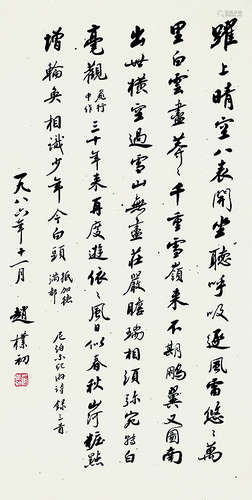 躍上晴空八表開坐聽呼吸逐風雷悠〻萬
里白雲盡莽〻千重雪嶺來不期鵬翼又圖南
出世橫空過雪山無盡莊嚴瞻瑞相須弥宛轉白
毫觀 飛行中作 三十年來再度遊依〻風日似春秋山河粧點
增輪奐相識少年今白頭 抵加德滿都 尼泊尔紀游詩錄三首
一九八六年十一月 趙樸初